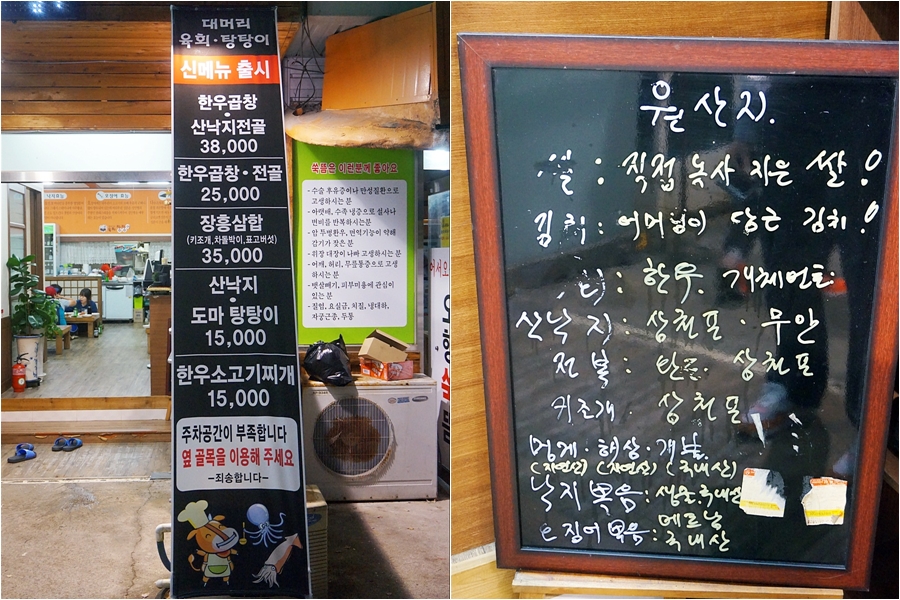 대머리
육회·탕탕이
신메뉴 출시
한우곱창
·
산낙지전골
38,000
한우곱창·전골
25,000
장흥삼합
(키조개,차돌박이,표고버섯)
35,000
산낙지
·
도마 탕탕이
15,000
한우소고기찌개
15,000
주차공간이 부족합니다
옆 골목을 이용해 주세요
-죄송합니다-
쑥뜸은 이런분께 좋아요
- 수술 후유증이나 만성질환으로
고생하시는 분
- 아랫배, 수족 냉증으로 설사나
변비를 반복하시는분
- 암 투병환우, 면역기능이 약해
감기가 잦은 분
- 위장 대장이 나빠 고생하시는 분
- 어깨, 허리, 무릎통증으로 고생
하시는 분
- 뱃살빼기, 피부미용에 관심이
있는 분
- 질염, 요실금, 치질, 냉대하,
자궁근종, 두통
어서오
원산지.
쌀 : 직접 농사 지은 쌀!
김치 : 어머님이 담근 김치!
: 한우
산낙지 : 삼천포 · 무안
전복 : 완도 삼천포
키조개 · 삼천포
멍게 · 해삼 · 개불
(자연산) (자연산) (국내산)
낙지볶음 : 생물 국내산
오징어볶음 : 베트남
국내산